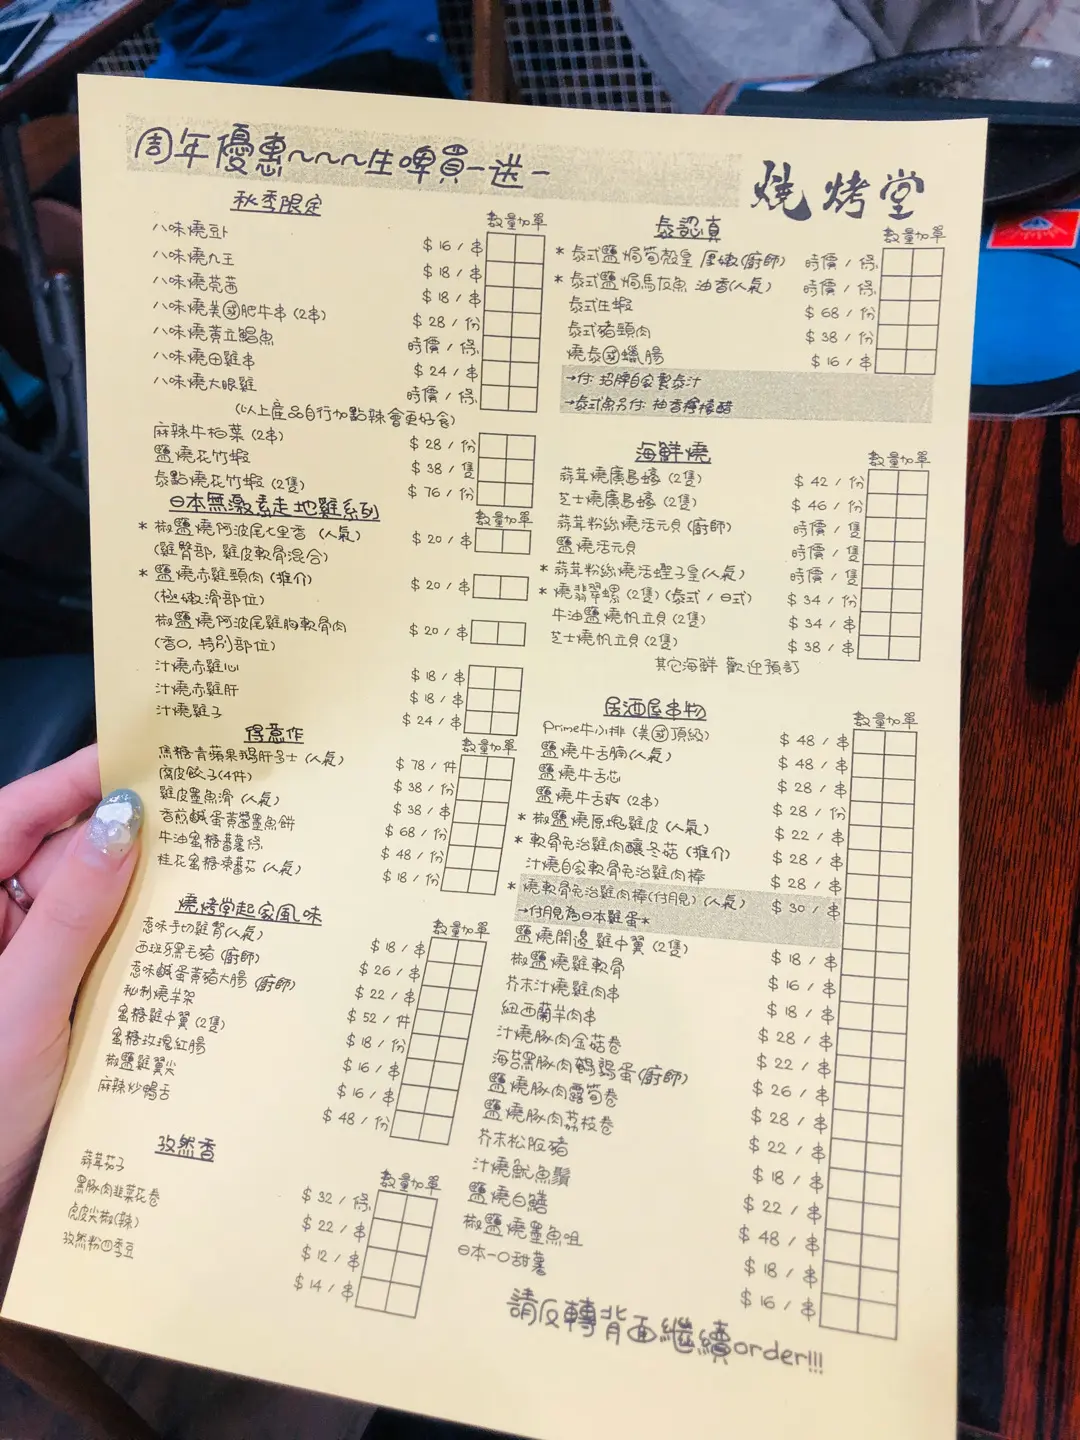 周年優惠~~~生啤買一送一
燒烤堂
秋季限定
數量加單
八味燒豆卜 $16/串
八味燒九王 $18/串
八味燒芫茜 $18/串
八味燒美國肥牛串(2串) $28/份
八味燒黃立鯧魚 時價/條
八味燒田雞串 $24/串
八味燒大眼雞 時價/條
(以上產品自行加點辣會更好食)
麻辣牛柏葉(2串) $28/份
鹽燒花竹蝦 $38/隻
泰點燒花竹蝦(2隻) $76/份
日本無激素走地雞系列
數量加單
*椒鹽燒阿波尾七里香(人氣) $20/串
(雞臀部,雞皮軟骨混合)
*鹽燒赤雞頸肉(推介) $20/串
(極嫩滑部位)
椒鹽燒阿波尾雞胸軟骨肉 $20/串
(香口,特別部位)
汁燒赤雞心 $18/串
汁燒赤雞肝 $18/串
汁燒雞子 $24/串
得意作
數量加單
焦糖青蘋果鵝肝多士(人氣) $78/件
窩皮餃子(4件) $38/份
雞皮墨魚滑(人氣) $38/串
香煎鹹蛋黃醬墨魚餅 $68/份
牛油蜜糖蕃薯條 $48/份
桂花蜜糖凍蕃茄(人氣) $18/份
燒烤堂起家風味
數量加單
惹味手切雞腎(人氣) $18/串
西班牙黑毛豬(廚師) $26/串
惹味鹹蛋黃豬大腸(廚師) $22/串
秘制燒羊架 $52/件
蜜糖雞中翼(2隻) $18/份
蜜糖玫瑰紅腸 $16/串
椒鹽雞翼尖 $16/串
麻辣炒鴨舌 $48/份
孜然香
數量加單
蒜茸茄子 $32/條
黑豚肉韮菜花卷 $22/串
虎皮尖椒(辣) $12/串
孜然粉四季豆 $14/串
泰認真
數量加單
*泰式鹽焗筍殼皇 厚嫩(廚師) 時價/條
*泰式鹽焗馬友魚 油香(人氣) 時價/條
泰式生蝦 $68/份
泰式豬頸肉 $38/份
燒泰國蠟腸 $16/串
→付:招牌自家製泰汁
→泰式魚另付:柚香檸檬醋
海鮮燒
數量加單
蒜茸燒廣島蠔(2隻) $42/份
芝士燒廣島蠔(2隻) $46/份
蒜茸粉絲燒活元貝(廚師) 時價/隻
鹽燒活元貝 時價/隻
*蒜茸粉絲燒活蟶子皇(人氣) 時價/隻
*燒翡翠螺(2隻)(泰式/日式) $34/份
牛油鹽燒帆立貝(2隻) $34/串
芝士燒帆立貝(2隻) $38/串
其它海鮮 歡迎預訂
居酒屋串物
數量加單
Prime牛小排(美國頂級) $48/串
鹽燒牛舌腩(人氣) $48/串
鹽燒牛舌芯 $28/串
鹽燒牛舌爽(2串) $28/份
*椒鹽燒原塊雞皮(人氣) $22/串
*軟骨免治雞肉釀冬菇(推介) $28/串
汁燒自家軟骨免治雞肉棒 $28/串
*燒軟骨免治雞肉棒(付月見)(人氣) $30/串
→付月見為日本雞蛋*
鹽燒開邊雞中翼(2隻) $18/串
椒鹽燒雞軟骨 $16/串
芥末汁燒雞肉串 $18/串
紐西蘭羊肉串 $28/串
汁燒豚肉金菇卷 $22/串
海苔黑豚肉鵪鶉蛋(廚師) $26/串
鹽燒豚肉露筍卷 $28/串
鹽燒豚肉荔枝卷 $22/串
芥末松阪豬 $18/串
汁燒魷魚鬚 $22/串
鹽燒白鱔 $48/串
椒鹽燒墨魚咀 $18/串
日本一口甜薯 $16/串
請反轉背面繼續order!!!